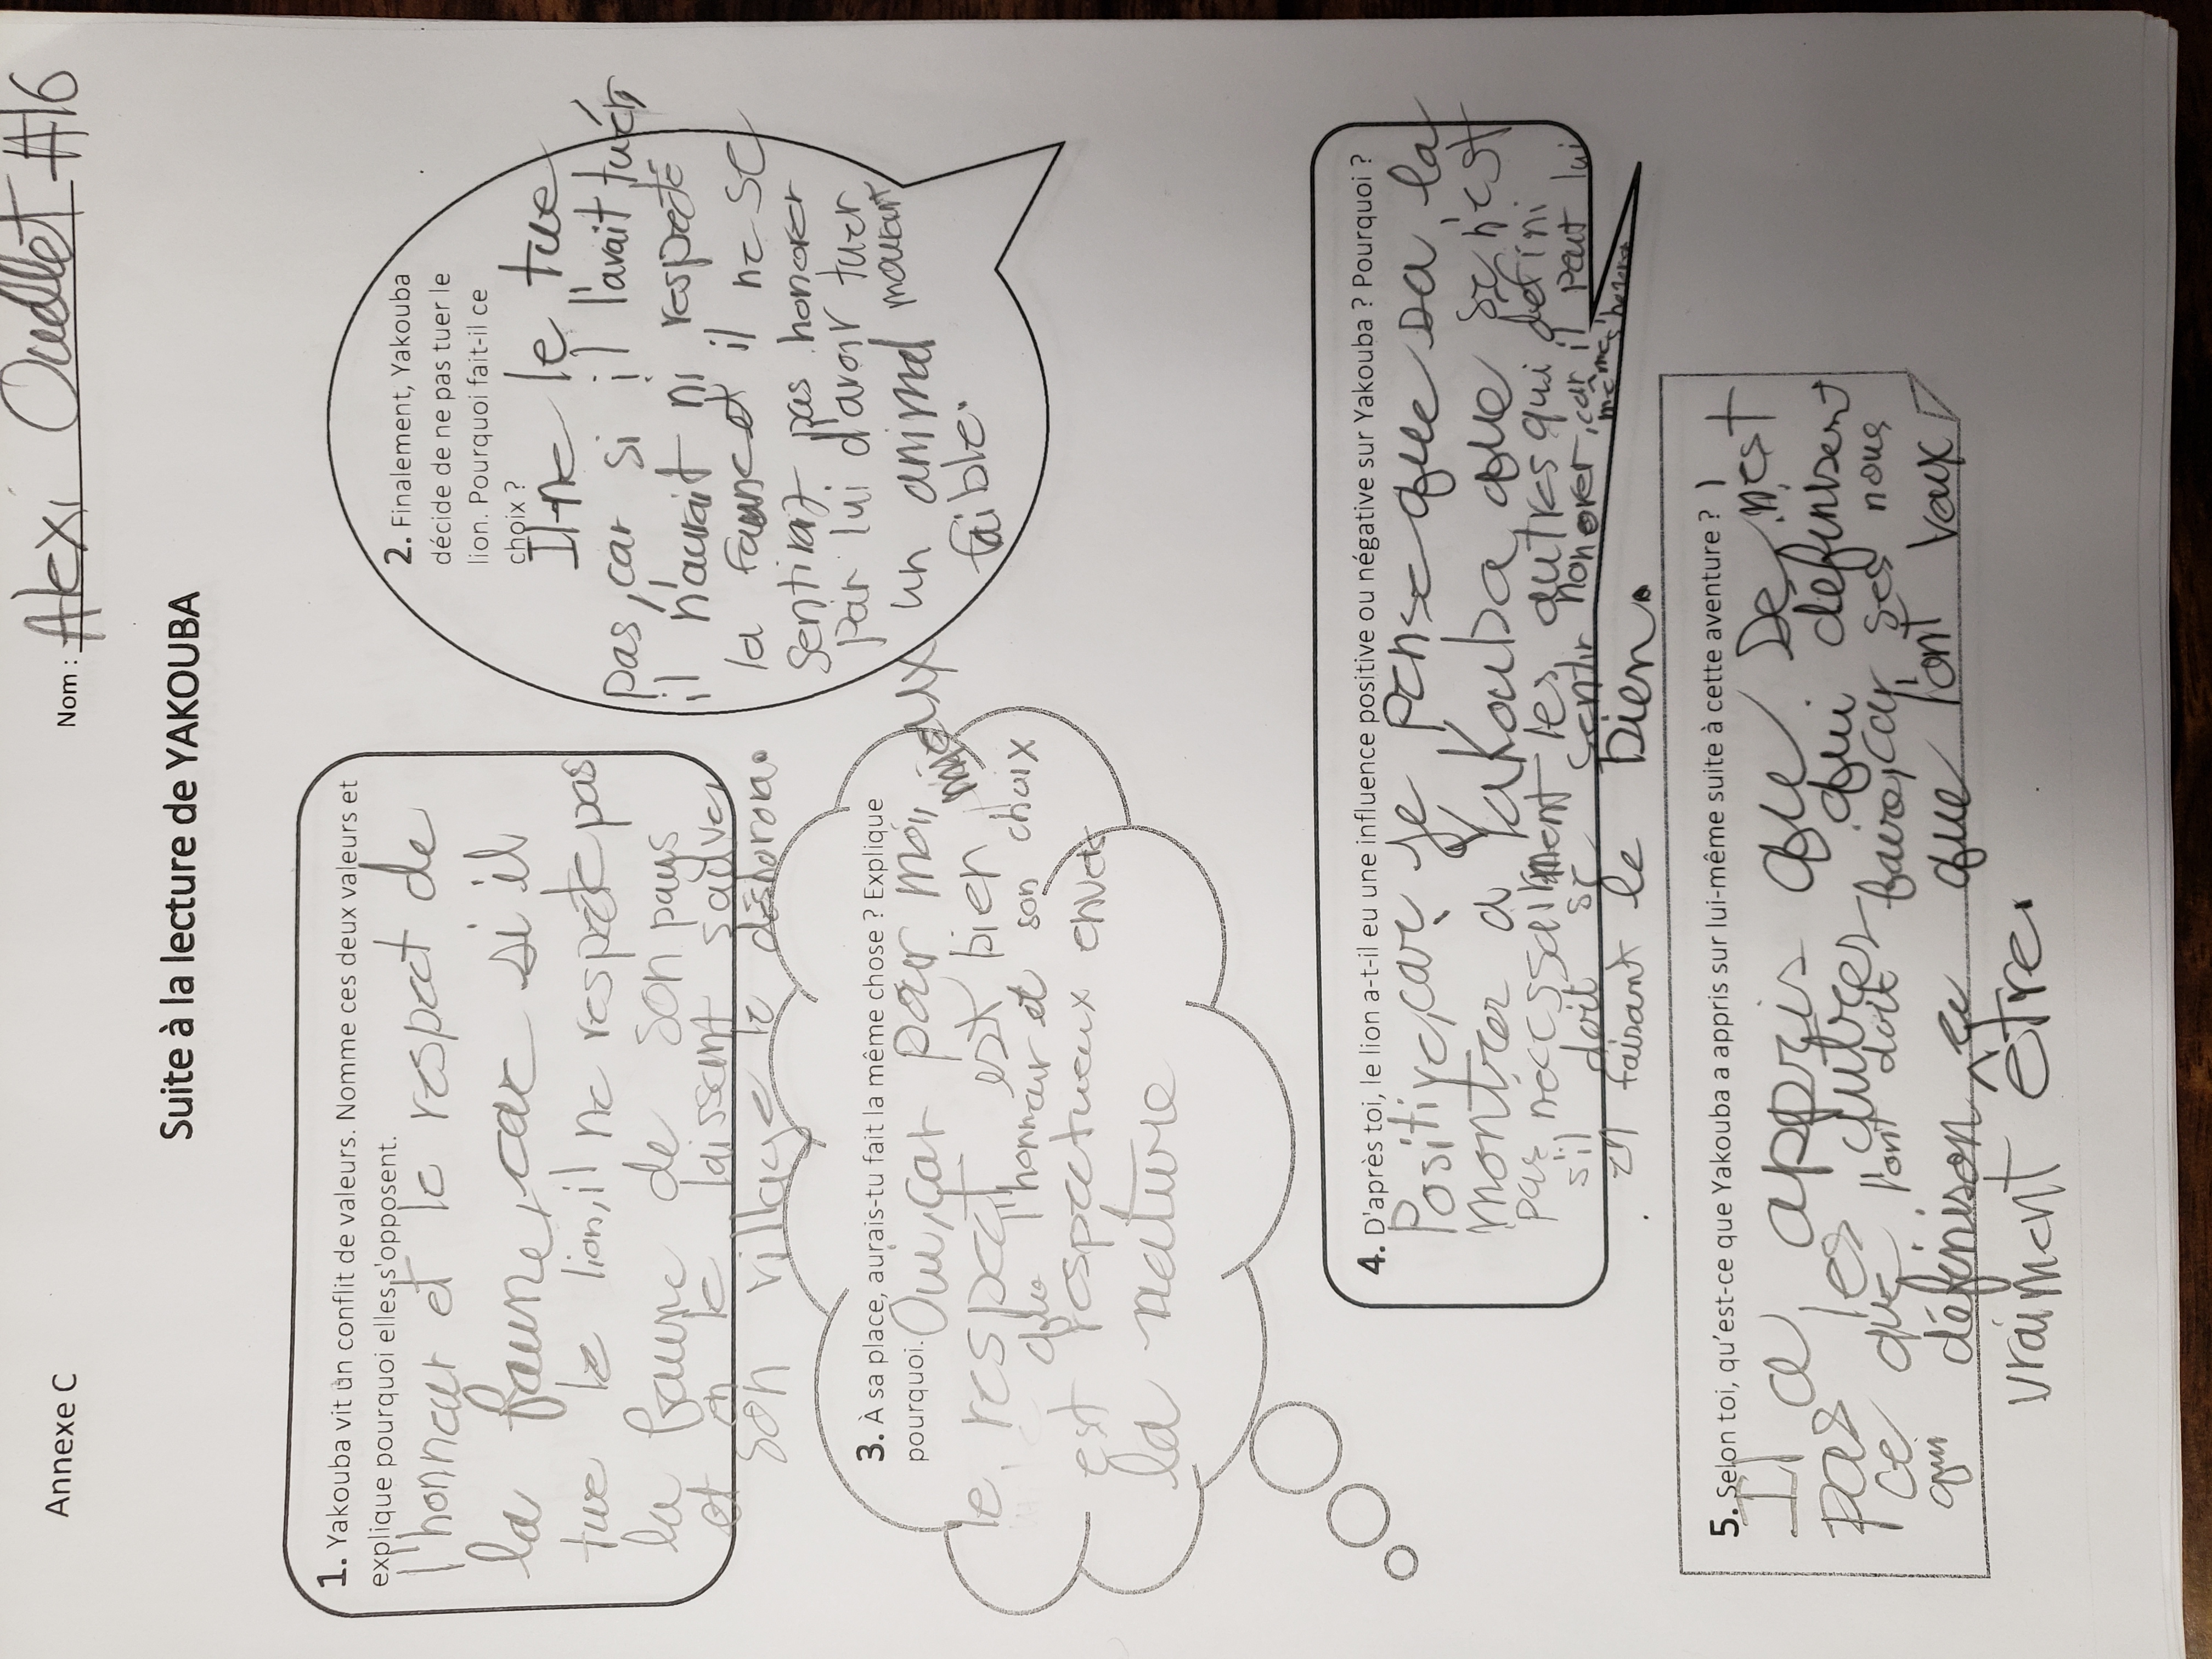 Annexe C
Nom : Alexi Ouellet #16
Suite à la lecture de YAKOUBA
1. Yakouba vit un conflit de valeurs. Nomme ces deux valeurs et
explique pourquoi elles s'opposent.
l'honneur et le respect de
la faune, car si il
tue le lion, il ne respecte pas
la faune de son pays
et en le laissant sauve,
son village le déshonora.
2. Finalement, Yakouba
décide de ne pas tuer le
lion. Pourquoi fait-il ce
choix ?
Il ne le tue
pas, car si il l'avait tué,
il n'aurait ni respecté
la faune et il ne se
sentirait pas honorer
par lui d'avoir tuer
un animal mourant
faible.
3. À sa place, aurais-tu fait la même chose ? Explique
pourquoi. Oui, car pour moi,
le respect est bien mieux
que l'honneur et son choix
est respectueux envers
la nature
4. D'après toi, le lion a-t-il eu une influence positive ou négative sur Yakouba ? Pourquoi ?
Positive, car je pense que sa la
montrer a Yakouba que se n'est
pas nécessairement les autres qui défini
s'il doit se sentir honorer, car il peut lui
même s'honorer
en faisant le bien.
5. Selon toi, qu'est-ce que Yakouba a appris sur lui-même suite à cette aventure ?
Il a appris que se n'est
pas les autres qui définisent
ce que l'ont doit faire, car ses nous
qui définison ce que l'ont vaux
vraiment être.